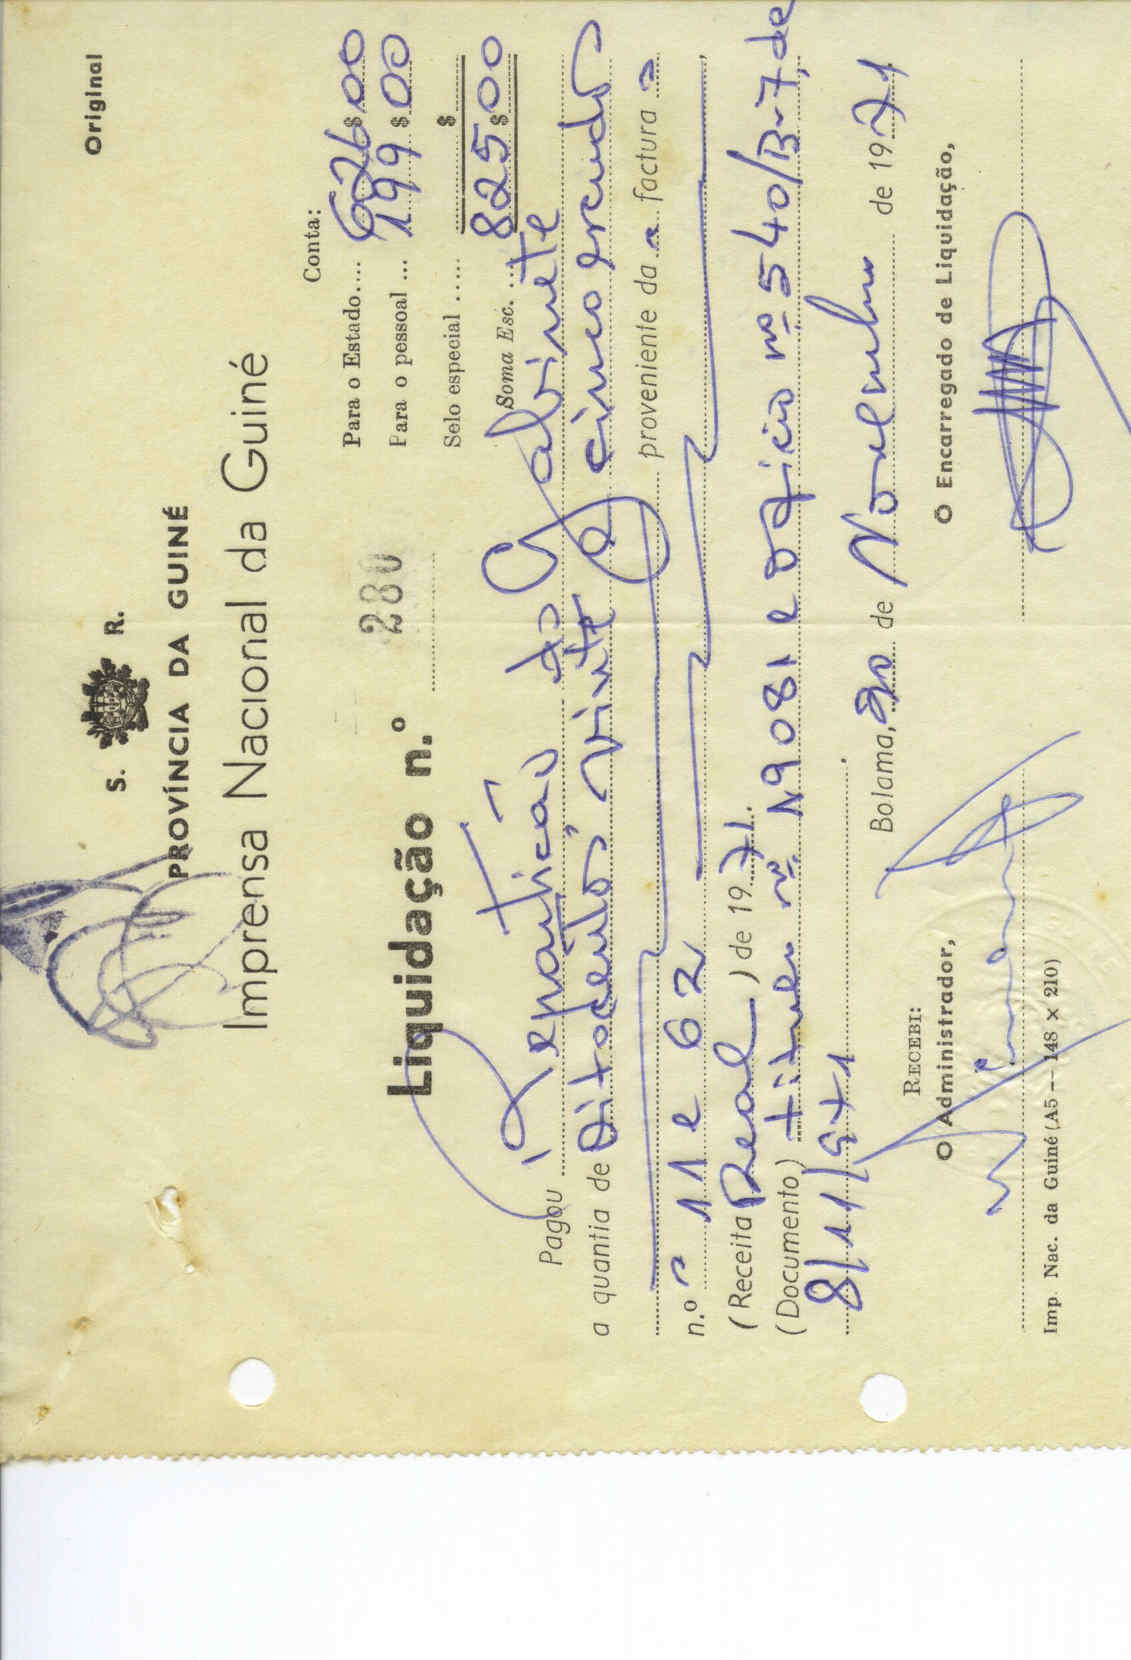 Original
S. R.
PROVÍNCIA DA GUINÉ
Imprensa Nacional da Guiné
Conta:
Liquidação n.º 280
Para o Estado.... 626$00
Para o pessoal ... 199$00
Selo especial .... $
Soma Esc. ... 825$00
Pagou Repartição do Gabinete
a quantia de Oitocentos vinte e cinco escudos
proveniente da factura
n.º 11 e 62
(Receita Real) de 1971.
(Documento) titulo nº 19081 e ofício nº 540/B-7, de
8/11/971
Bolama, de Novembro de 1971
RECEBI:
O Administrador,
O Encarregado de Liquidação,
Imp. Nac. da Guiné (A5 -- 148 × 210)